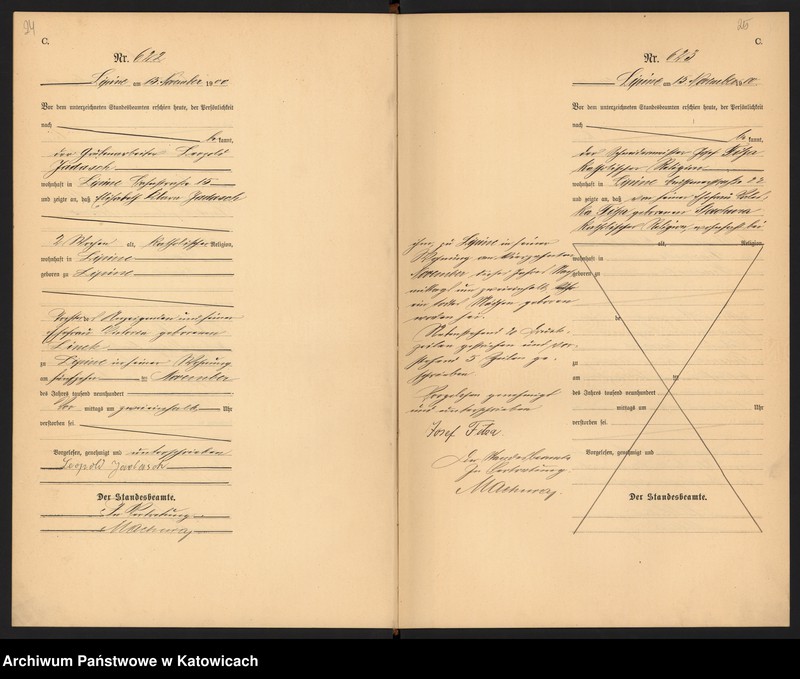 24
C.
Nr. 622
Lipine am 15. November 1900
Vor dem unterzeichneten Standesbeamten erschien heute, der Persönlichkeit
nach
be kannt,
der Grubenarbeiter Leopold
Jadasch
wohnhaft in Lipine
und zeigte an, daß Elisabeth Klara Jadasch
2 Wochen alt, katholischer Religion,
wohnhaft in Lipine
geboren zu Lipine
Tochter des Anzeigenden und seiner
Ehefrau Victoria geborenen
Linek
zu Lipine in seiner Wohnung
am fünfzehn ten November
des Jahres tausend neunhundert
Vor mittags um Uhr
verstorben sei.
Vorgelesen, genehmigt und unterschrieben
Leopold Jadasch
Der Standesbeamte.
In Vertretung
25
C.
Nr. 623
Lipine am 15. November 1900
Vor dem unterzeichneten Standesbeamten erschien heute, der Persönlichkeit
nach
be kannt,
der Schneidermeister Josef
katholischer Religion
wohnhaft in Lipine 22
und zeigte an, daß von seiner Ehefrau
geborenen
katholischer Religion, wohnhaft bei
ihm, zu Lipine in seiner
Wohnung am
November dieses Jahres Nach-
mittags um
ein todtes Mädchen geboren
worden sei.
Nebenstehend 12 Druck-
zeilen gestrichen und vor-
stehend 5 Zeilen ge-
schrieben
Vorgelesen, genehmigt
und unterschrieben
Josef
Der Standesbeamte
In Vertretung
alt, Religion,
wohnhaft in
geboren zu
de
zu
am ten
des Jahres tausend neunhundert
mittags um Uhr
verstorben sei.
Vorgelesen, genehmigt und
Der Standesbeamte.
Archiwum Państwowe w Katowicach